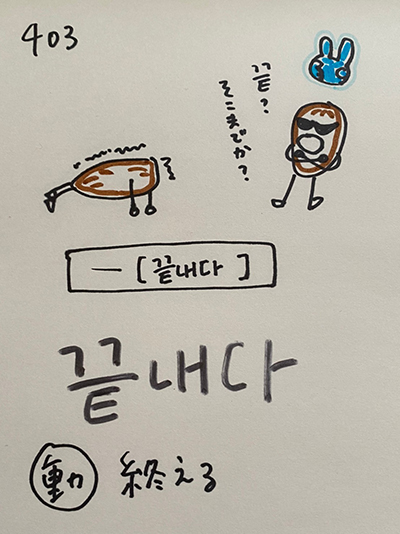 403
끝?
そこまでか?
一 [끝내다]
끝내다
動 終える